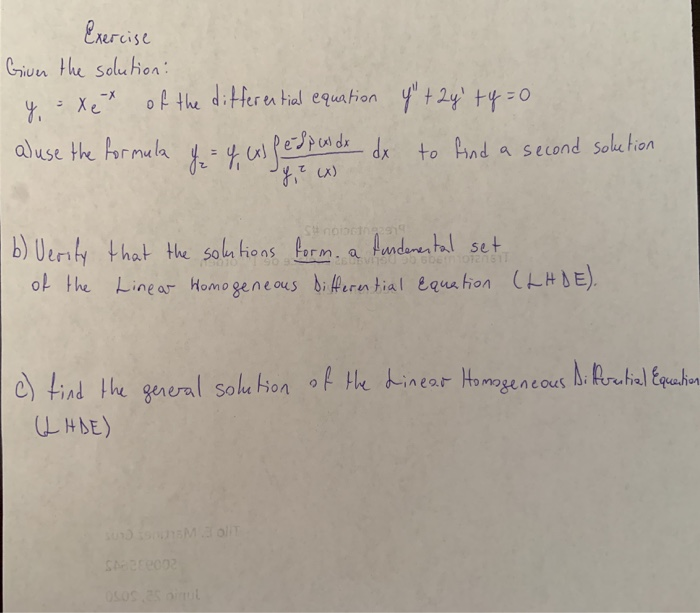 Exercise
Given the solution:
y₁ = xe^-x of the differential equation y'' + 2y' + y = 0
a) use the formula y₂ = y₁(x) ∫ e^-∫p(x)dx / y₁²(x) dx to find a second solution
b) Verify that the solutions form. a fundamental set
of the Linear Homogeneous Differential Equation (LHDE).
c) find the general solution of the Linear Homogeneous Differential Equation
(LHDE)